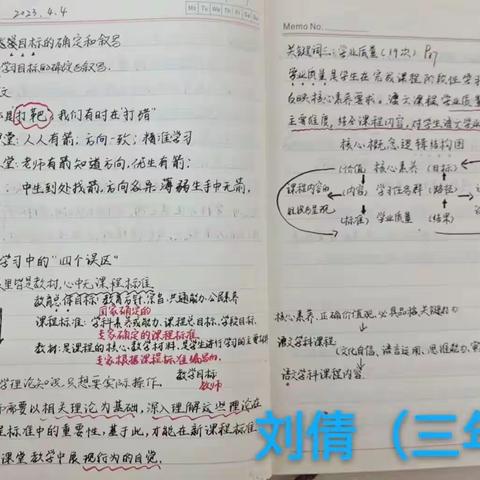 2023.4.4
目标的确定和叙写
学习目标的确定与叙写.
打靶，我们有时在"打猎"
堂：人人有箭；方向一致；精准学习
堂：老师有箭知道方向，优生有箭；
中生到处找箭，方向各异 薄弱生手中无箭，
学习中的"四个误区"
里皆是教材，心中无课程标准
教育总体目标：教育方针、宗旨、共通能力、公民素养
国家确定的
课程标准：学科素养或能力、课程总目标、学段目标、
专家确定的课程标准
教材：是课程的核心教学材料，是学生进行学习的主要
专家根据课程标准编写的.
学理论知识，只想要实际操作.
教学目标
教师
需要以相关理论为基础，深入理解这些理论在
标准中的重要性，基于此，才能在新课程标准
课堂教学中展现行为的自觉.
Memo No.
关键词三：学业质量（19次）
学业质量是学生在完成课程阶段性学
反映核心素养要求。语文课程学业质量
主要维度，结合课程内容，对学生语文学业
核心概念逻辑结构图
（价值） 核心素养 （目标）
课程内容的 （内容） 学习任务群 （路径）
组织与呈现
（标准） 学业质量 （结果）
核心素养：正确价值观、必备品格、关键能力
语文学科课程
（文化自信、语言运用、思维能力、
语文学科课程内容.
刘倩（三年